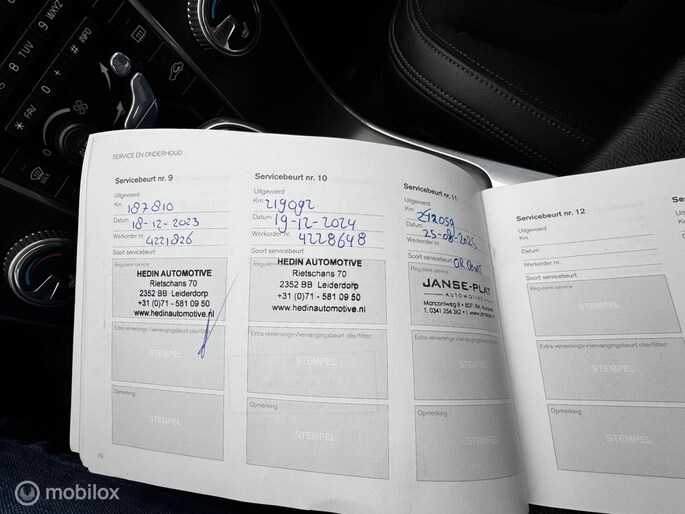 8
TUV
9
WXY
0
+
#
INFO
FAV
SERVICE EN ONDERHOUD
Servicebeurt nr. 9
Uitgevoerd
Km 187810
Datum 18-12-2023
Werkorder nr. 4221826
Soort servicebeurt
Reguliere service
HEDIN AUTOMOTIVE
Rietschans 70
2352 BB Leiderdorp
+31 (0)71 - 581 09 50
www.hedinautomotive.nl
Extra verversings-/vervangingsbeurt olie/filter:
STEMPEL
Opmerking
STEMPEL
10
Servicebeurt nr. 10
Uitgevoerd
Km 219092
Datum 19-12-2024
Werkorder nr. 4228648
Soort servicebeurt
Reguliere service
HEDIN AUTOMOTIVE
Rietschans 70
2352 BB Leiderdorp
+31 (0)71 - 581 09 50
www.hedinautomotive.nl
Extra verversings-/vervangingsbeurt olie/filter:
STEMPEL
Opmerking
STEMPEL
Servicebeurt nr. 11
Uitgevoerd
Km
Datum 25-08-2025
Werkorder nr.
Soort servicebeurt GR Beurt
Reguliere service
JANSE-PLAT
AUTOMOTIVE
Marconiweg 8 • 8071 RA, Nunspeet
T. 0341 256 362 •
Extra verversings-/vervangingsbeurt
STEMPEL
Opmerking
STEMPEL
Servicebeurt nr. 12
Uitgevoerd
Km
Datum
Werkorder nr.
Soort servicebeurt
Reguliere service
STEMPEL
Extra verversings-/vervangingsbeurt olie/filter:
STEMPEL
Opmerking
STEMPEL
mobilox